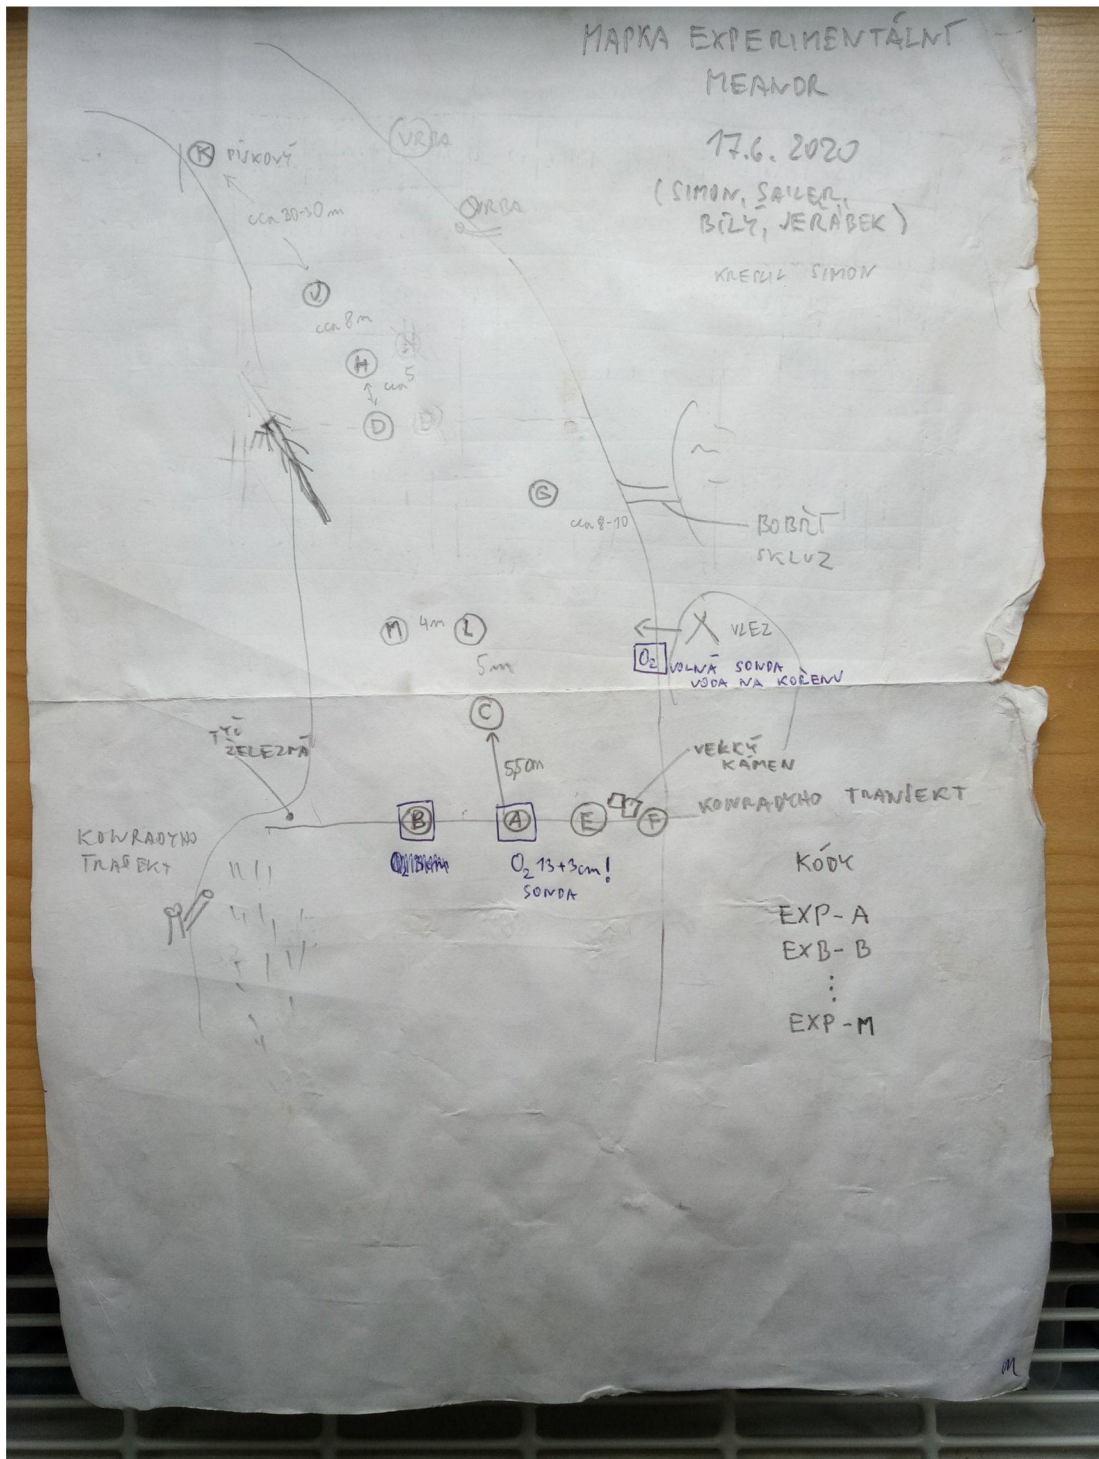 MAPKA EXPERIMENTÁLNÍ
MEANDR
17.6. 2020
(SIMON, SAILER,
BÍLÝ, JEŘÁBEK)
KRESLIL SIMON
VRBA
VRBA
K PÍSKOVÝ
cca 30-50 m
J
cca 8 m
H
cca 5
D
D
G
cca 8-10
BOBŘÍ
SKLUZ
M 4m L
5m
VLEZ
O₂ VOLNÁ SONDA
VODA NA KOŘENU
C
TYČ
ŽELEZNÁ
5,5m
VELKÝ
KÁMEN
KONRADYHO TRANSEKT
B A E F
KONRADYHO
TRASEKT
O₂ 13+3cm!
SONDA
KÓDY
EXP-A
EXB-B
EXP-M
M